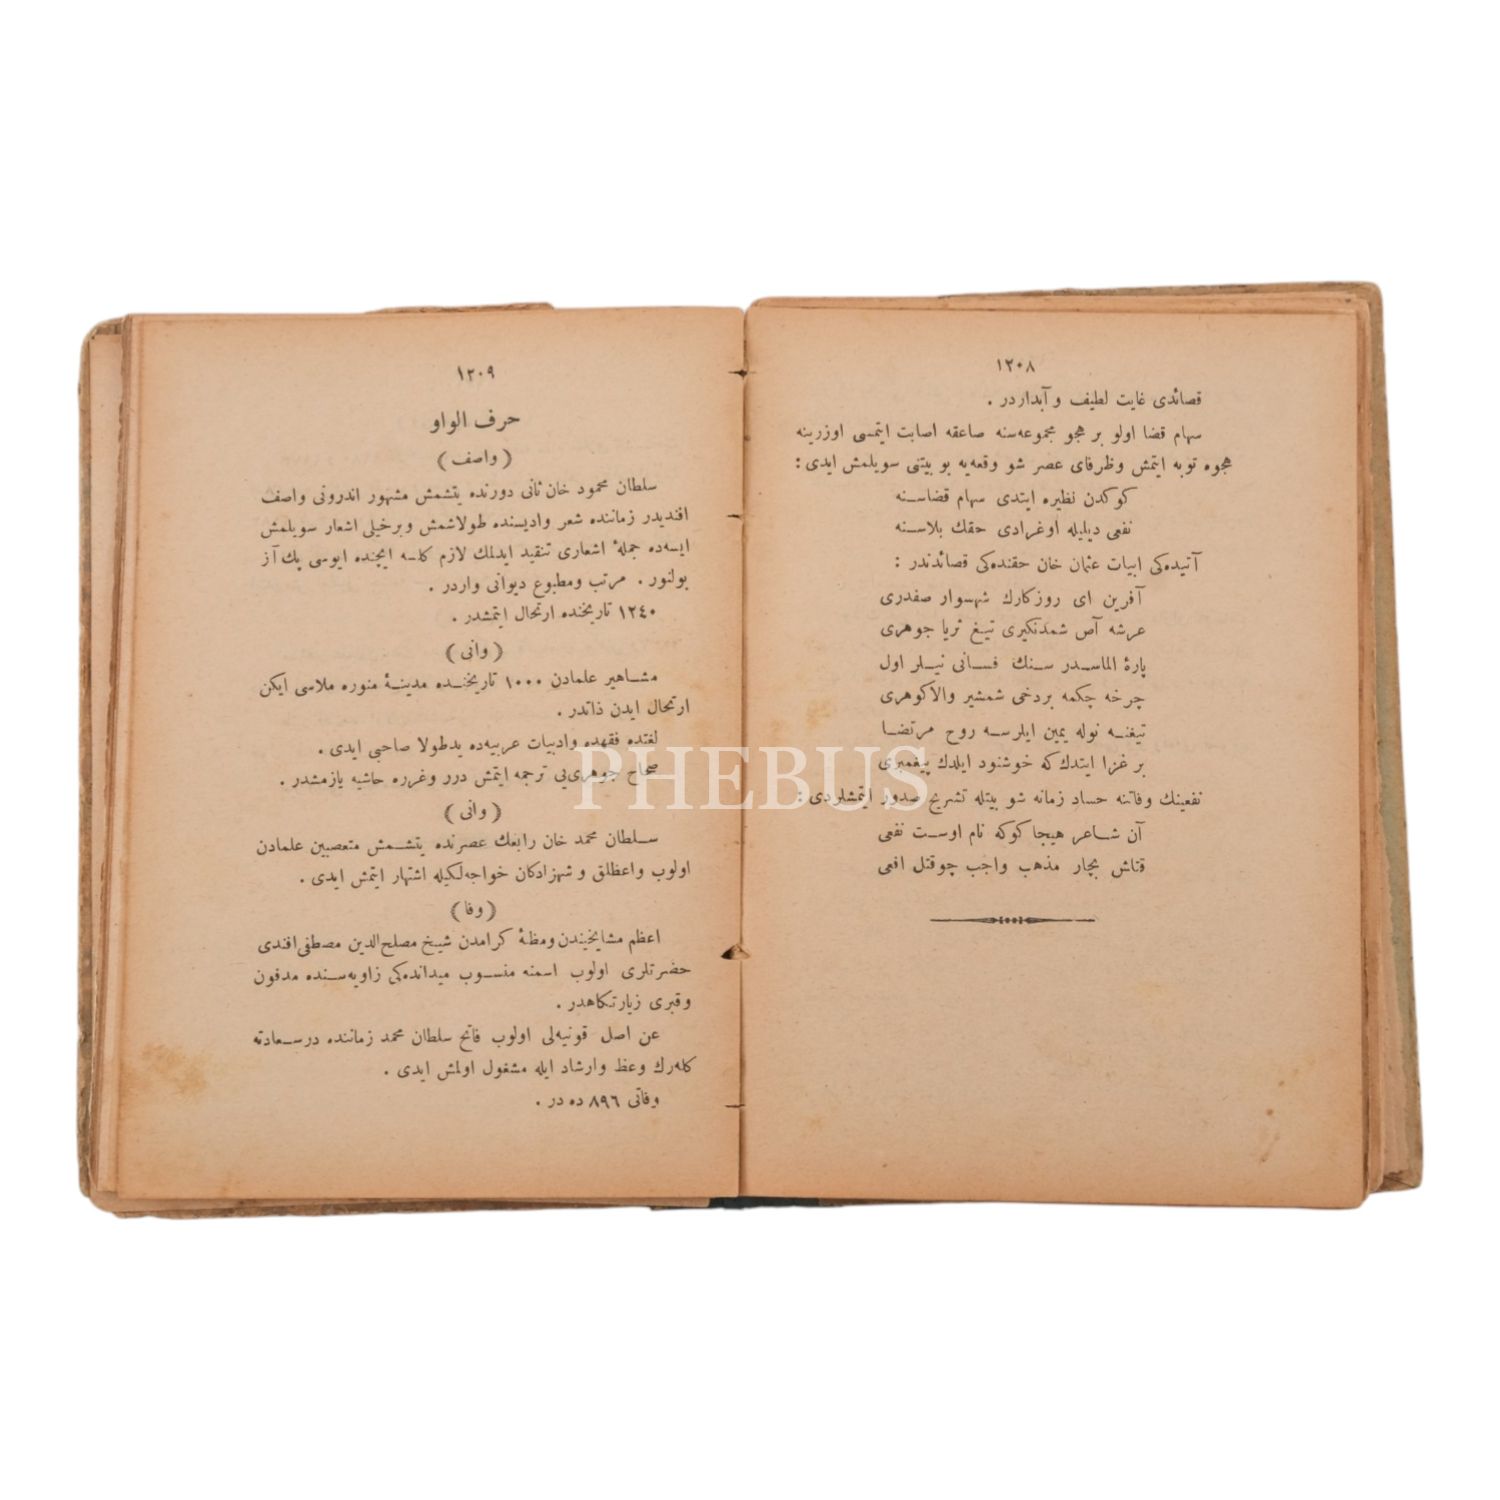 ١٢٠٨
قصائدی غایت لطیف و آبداردر .
سهام قضا اولو بر هجو مجموعه‌سنه صاعقه اصابت ایتمسی اوزرینه
هجوه توبه ایتمش وظرفای عصر شو وقعه‌یه بو بیتنی سویلمش ایدی :
کوکدن نظیره ایندی سهام قضاسـنه
نفعی دیلیله اوغرادی حقك بلاسـنه
آتیده‌کی ابیات عثمان خان حقنده‌کی قصائدندر :
آفرین ای روزکارك شهسوار صفدری
عرشه آص شمدنکیری تیـغ ثریا جوهری
پارهٔ الماسـدر سـنك فسـانی نیـلر اول
چرخه چکمه بردخی شمشیر والاکوهری
تیغنـه نوله یمین ایلرسـه روح مرتضـا
بر غزا ایتدك که خوشنود ایلدك پیغمبری
نفعینك وفاتنه حساد زمانه شو بیتله تشریح صدور ایتمشلردی :
آن شـاعر هیجا کوکه نام اوسـت نفعی
قتلش بچار مذهب واجب چوقتل افعی
PHEBUS
١٢٠٩
حرف الواو
( واصف )
سلطان محمود خان ثانی دورنده یتشمش مشهور اندرونی واصف
افندیدر زماننده شعر وادیسنده طولاشمش وبرخیلی اشعار سویلمش
ایسه‌ده جملهٔ اشعاری تنقید ایدلمك لازم کلسه ایچنده ایوسی پك آز
بولنور . مرتب ومطبوع دیوانی واردر .
١٢٤٠ تاریخنده ارتحال ایتمشدر .
( وانی )
مشـاهیر علمادن ١٠٠٠ تاریخنـده مدینـهٔ منوره ملاسی ایکن
ارتحال ایدن ذاتدر .
لغتده فقهده وادبیات عربیه‌ده یدطولا صاحبی ایدی .
صحاح جوهری‌یی ترجمه ایتمش درر وغرره حاشیه یازمشدر .
( وانی )
سـلطان محمد خان رابعك عصرنده یتشـمش متعصبین علمادن
اولوب واعظلق و شهزادکان خواجه‌لکیله اشتهار ایتمش ایدی .
( وفا )
اعظم مشایخیندن ومظنهٔ کرامدن شیـخ مصلح‌الدین مصطفی افندی
حضرتلری اولوب اسمنه منسـوب میدانده‌کی زاویه‌سـنده مدفون
وقبری زیارتکاهدر .
عن اصل قونیه‌لی اولوب فاتح سلطان محمد زماننده درسـعادته
کله‌رك وعظ وارشاد ایله مشغول اولمش ایدی .
وفاتی ٨٩٦ ده در .